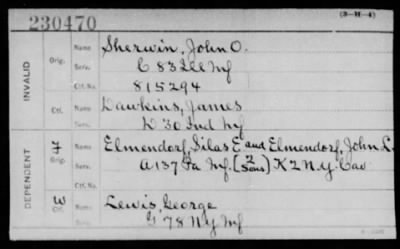 230470
(3-M-4)
INVALID
Orig.
Name Sherwin, John O.
Serv. C 83 Ill Inf
Ctf. No. 815294
Ctf.
Name Dawkins, James
Serv. D 30 Ind Inf
DEPENDENT
F
Orig.
Name Elmendorf, Silas E and Elmendorf, John L.
Serv. A 137 Pa Inf. (2 Sons) K 2 N.Y. Cav
Ctf. No.
W
Ctf.
Name Lewis, George
Serv. G 78 N.Y. Inf